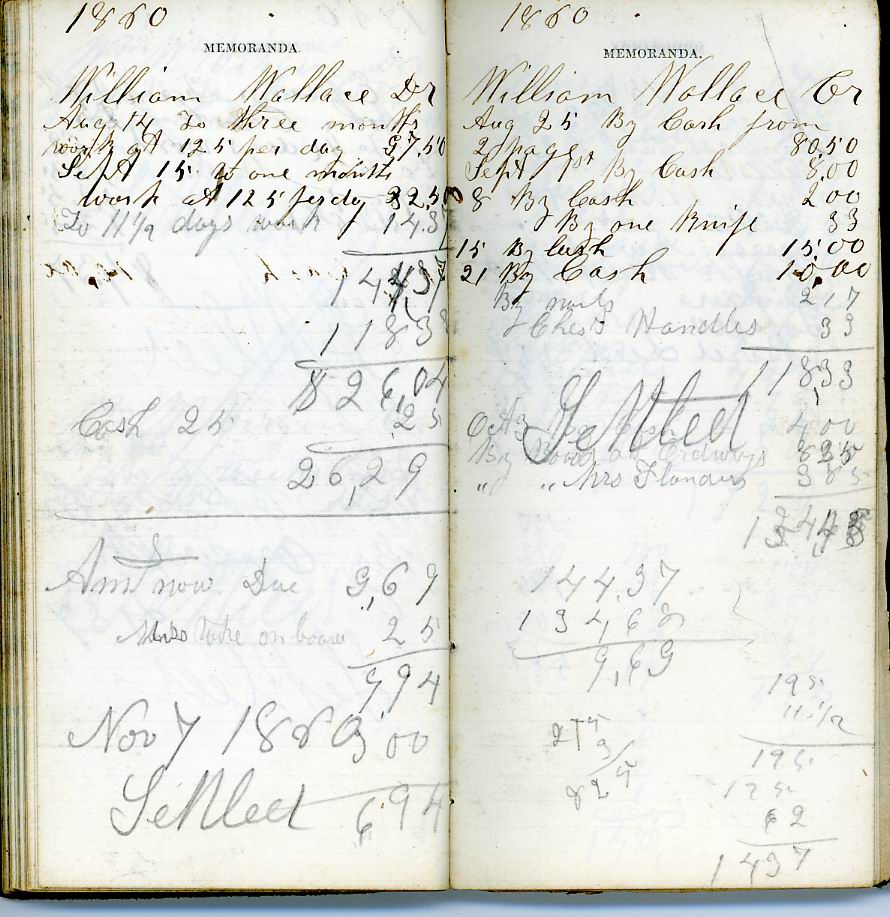 1860
MEMORANDA.
William Wallace Dr
Aug 14 To three months
work at 125 per day 97.50
Sept 15 to one month
work at 125 per day 32.50
To 11 1/2 days work 14.37
144,37
118 33
26,04
Cash 25 25
26,29
Amt now Due 9,69
take on board 25
994
Nov 7 1860 3 00
Settled 6 94
1860
MEMORANDA.
William Wallace Cr
Aug 25 By Cash from
2 pages 80.50
Sept 1st By Cash 8.00
8 By Cash 2 00
By one Knife 33
15 By Cash 15.00
21 By Cash 10.00
By nails 2 17
" Chest Handles 33
118,33
Settled
Oct 3 By Cash 4 00
By Board at Ordways 8 25
" " Mrs Flanders 3 85
144,37
134,68
9,69
125
11 1/2
275
3
825
125
125
62
1437